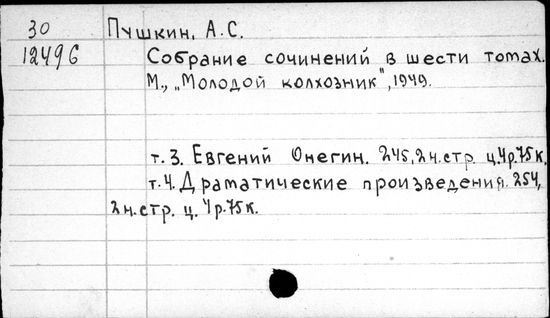 30 Пушкин, А.С.
12496 Собрание сочинений в шести томах.
М., „Молодой колхозник", 1949.
т. 3. Евгений Онегин. 245, 2 н. стр. ц. 4 р. 75 к.
т. 4. Драматические произведения. 254,
2 н. стр. ц. 4 р. 75 к.